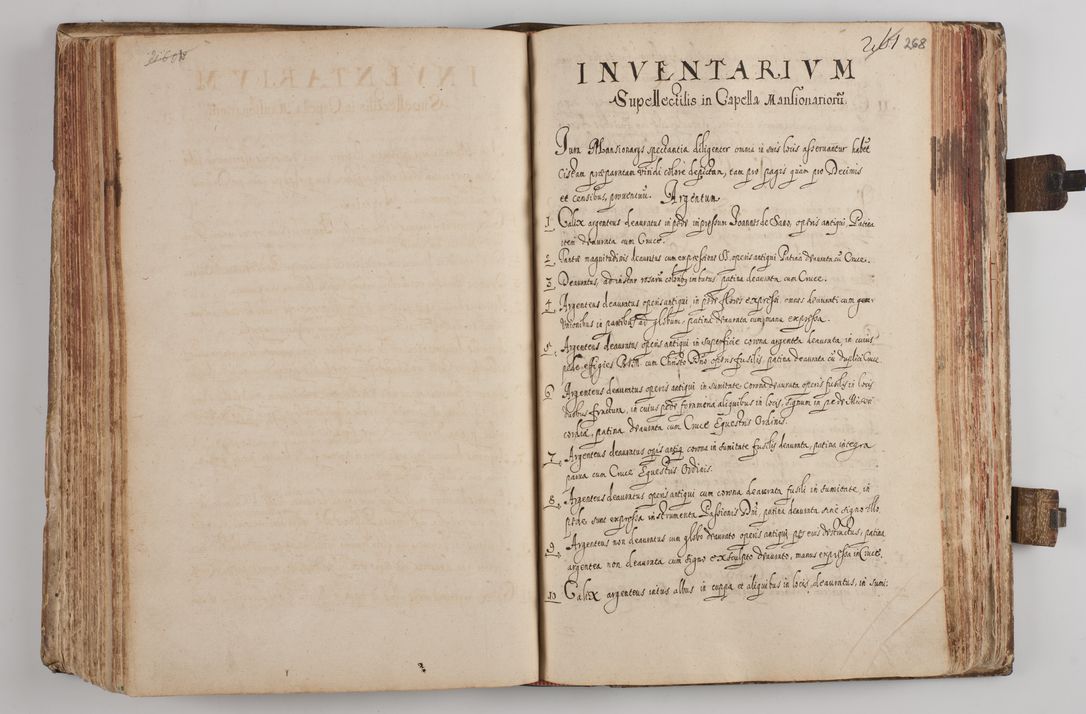 261 268
INVENTARIVM
Supellectilis in Capella Mansionariorũ
Jura Mansionarijs spectantia diligenter omnia in suis locis asservantur habẽt
Cistam præparatam viridi colore depictam, tam pro pagis quàm pro Decimis
et censibus, provenium. Argentum
1 Calix argenteus deauratus in pede impressum Joannes de Sano, operis antiqui Patina
item deaurata cum Cruce.
2 magnitudinis deauratus cum expressione operis antiqui Patina deaurata cũ Cruce.
3 Deauratus, ad instar rosarũ colorib imbutus, patina deaurata cum Cruce.
4 Argenteus deauratus operis antiqui, in pede flores expressi, omnes deaurati cum gem
Vnionibus in partibus ad globum, patina deaurata cum manu expressa.
5 Argenteus deauratus operis antiqui in superficie corona argentea deaurata, in cuius
pede effigies cum Christo Dño operis fusilis, patina deaurata cũ duplici Cruce
6 Argenteus deauratus operis antiqui in sumitate corona deaurata operis fusilis in locis
duobus fractura, in cuius pede foramina aliquibus in locis, signum in pede Miseri
cordia, patina deaurata cum Cruce Equestris Ordinis.
7 Argenteus deauratus opis antiq corona in sumitate fusilis deaurata, patina integra
parva cum Cruce Equestris Ordinis.
8 Argenteus deauratus operis antiqui cum corona deaurata fusili in sumitate, in
pede sunt expressa instrumenta Passionis Dñi, patina deaurata sine signo illo.
9 Argenteus non deauratus cum globo deaurato operis antiqui pes eius detractus, patina
argentea non deaurata cum signo exsculpto deaurato, manus expressa in Cruce.
10 Calix argenteus intus albus in cuppa et aliquibus in locis, deauratus, in sumi: